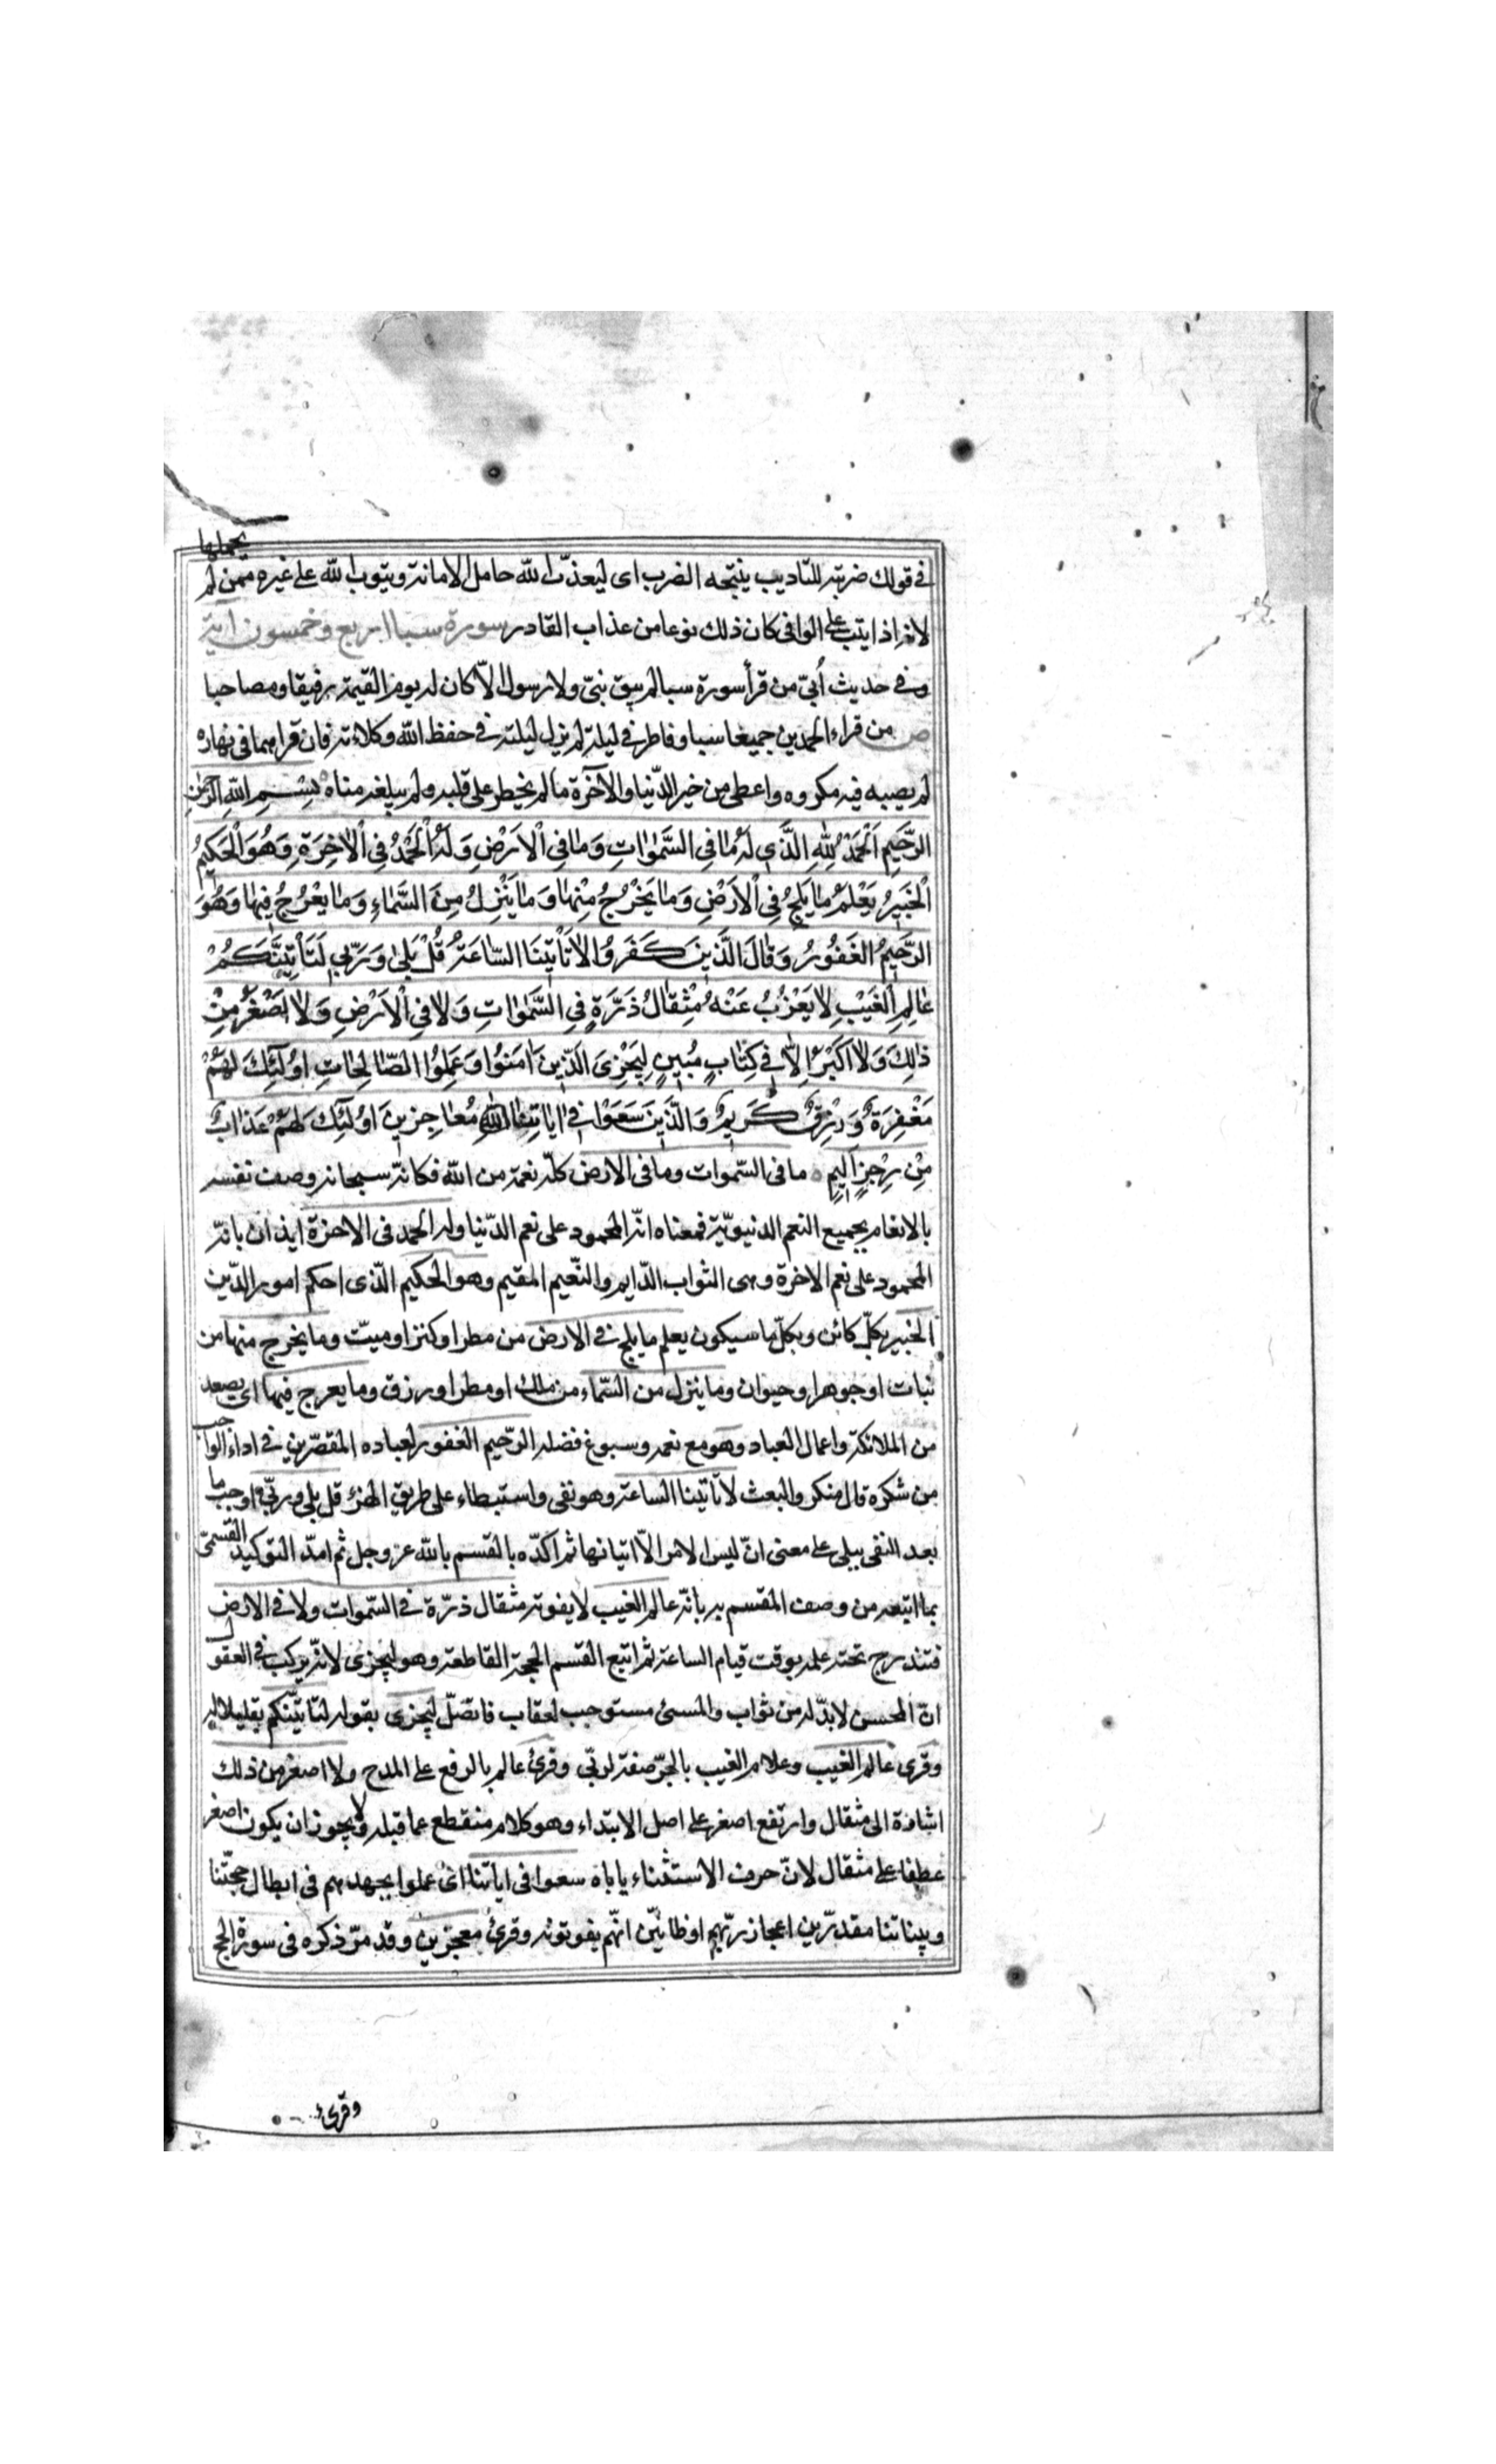 في قولك ضربته للتاديب ينتجه الضرب اى ليعذب الله حامل الامانة ويتوب الله على غيره ممن لم يحملها
لانه اذا يتب على الوافى كان ذلك نوعا من عذاب القادر سورة سبا اربع وخمسون آية
وفي حديث أُبيّ من قرأ سورة سبا لم يبق نبىّ ولا رسول الاّ كان له يوم القيمة رفيقا ومصاحبا
ص من قراء الحمدين جميعا سبا وفاطر في ليلة لم يزل ليلته في حفظ الله وكلاءته فان قراهما فى نهاره
لم يصبه فيه مكروه واعطى من خير الدّنيا والآخرة ما لم يخطر على قلبه ولم يبلغه مناه بِسْمِ اللّهِ الرَّحْمٰنِ
الرَّحِيمِ اَلْحَمْدُ لِلّٰهِ الَّذِى لَهُ مَا فِى السَّمٰوَاتِ وَمَا فِى الْاَرْضِ وَلَهُ الْحَمْدُ فِى الْاٰخِرَةِ وَهُوَ الْحَكِيمُ
الْخَبِيرُ يَعْلَمُ مَا يَلِجُ فِى الْاَرْضِ وَمَا يَخْرُجُ مِنْهَا وَمَا يَنْزِلُ مِنَ السَّمَاءِ وَمَا يَعْرُجُ فِيهَا وَهُوَ
الرَّحِيمُ الْغَفُورُ وَقَالَ الَّذِينَ كَفَرُوا لَا تَاْتِينَا السَّاعَةُ قُلْ بَلٰى وَرَبِّى لَتَاْتِيَنَّكُمْ
عَالِمِ الْغَيْبِ لَا يَعْزُبُ عَنْهُ مِثْقَالُ ذَرَّةٍ فِى السَّمٰوَاتِ وَلَا فِى الْاَرْضِ وَلَا اَصْغَرُ مِنْ
ذٰلِكَ وَلَا اَكْبَرُ اِلَّا فِى كِتَابٍ مُبِينٍ لِيَجْزِىَ الَّذِينَ اٰمَنُوا وَعَمِلُوا الصَّالِحَاتِ اُولٰئِكَ لَهُمْ
مَغْفِرَةٌ وَرِزْقٌ كَرِيمٌ وَالَّذِينَ سَعَوْا فِى اٰيَاتِنَا مُعَاجِزِينَ اُولٰئِكَ لَهُمْ عَذَابٌ
مِنْ رِجْزٍ اَلِيمٍ ما فى السّموات وما فى الارض كلّه نعمة من الله فكانّه سبحانه وصف نفسه
بالانعام بجميع النعم الدنيويّة فمعناه انّه المحمود على نعم الدّنيا وله الحمد فى الاخرة ايذان بانّه
المحمود على نعم الاخرة وهى الثواب الدّايم والنّعيم المقيم وهو الحكيم الّذى احكم امور الدّين
الخبير بكلّ كائن وبكلّ ما سيكون يعلم ما يلج في الارض من مطر او كنز او ميّت وما يخرج منها من
نبات او جوهر او حيوان وما ينزل من السّماء من ملك او مطر او رزق وما يعرج فيها اى يصعد
من الملائكة واعمال العباد وهو مع نعمه وسبوغ فضله الرّحيم الغفور لعباده المقصّرين في اداء الواجب
من شكره قال منكروا البعث لا تاتينا الساعة وهو نفى واستبطاء على طريق الهزء قل بلى وربّى اوجب ما
بعد النفى ببلى على معنى ان ليس الامر الاّ اتيانها ثم اكدّه بالقسم بالله عز وجل ثم امدّ التوكيد القسمىّ
بما اتبعه من وصف المقسم به بانّه عالم الغيب لا يفوته مثقال ذرّة في السّموات ولا في الارض
فتندرج تحته علمه بوقت قيام الساعة ثم اتبع القسم الحجة القاطعة وهو ليجزى لانّه ركب في العقول
انّ المحسن لا بدّ له من ثواب والمسئ مستوجب لعقاب فاتصل ليجزى بقوله لتاتينّكم تعليلا له
وقرئ عالم الغيب وعلام الغيب بالجرّ صفة لربّى وقرئ عالم بالرفع على المدح ولا اصغر من ذلك
اشارة الى مثقال وارتفع اصغر على اصل الابتداء وهو كلام منقطع عما قبله ولا يجوز ان يكون اصغر
عطفا على مثقال لانّ حرف الاستثناء ياباه سعوا فى اياتنا اى عملوا بجهدهم فى ابطال حججنا
وبيناتنا مقدرين اعجاز ربّهم او ظانّين انّهم يفوتونه وقرئ معجزين وقد مرّ ذكره فى سورة الحج
وقرئ